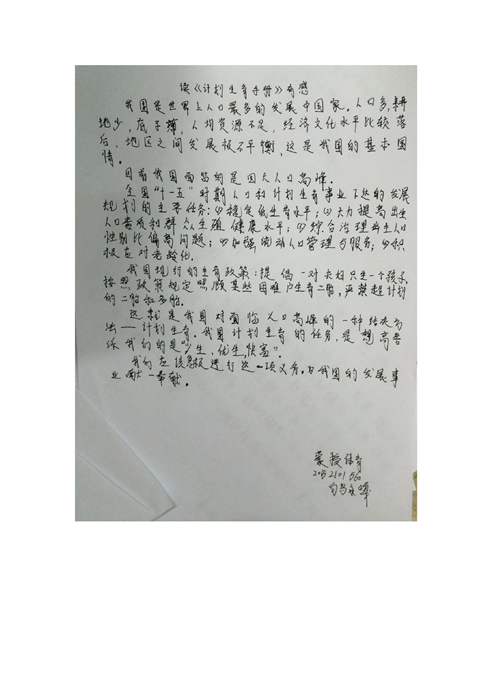 读《计划生育手册》有感
我国是世界上人口最多的发展中国家，人口多，耕
地少，底子薄，人均资源不足，经济文化水平比较落
后，地区之间发展极不平衡，这是我国的基本国
情。
目前我国面临的是四大人口高峰。
全国“十一五”时期人口和计划生育事业不达的发展
规划的主要任务：(1)稳定低生育水平；(2)大力提高出生
人口素质和群众生殖健康水平；(3)综合治理出生人口
性别比偏高问题；(4)加强流动人口管理与服务；(5)积
极应对老龄化。
我国现行的生育政策：提倡一对夫妇只生一个孩子，
按照政策规定照顾某些困难户生育二胎，严禁超计划
的二胎和多胎。
这就是我国对面临人口高峰的一种结决方
法——计划生育。我国计划生育的任务，是想高告
诉我们的是“少生，优生，快富”。
我们应该积极进行这一项义务。为我国的发展事
业献一奉献。